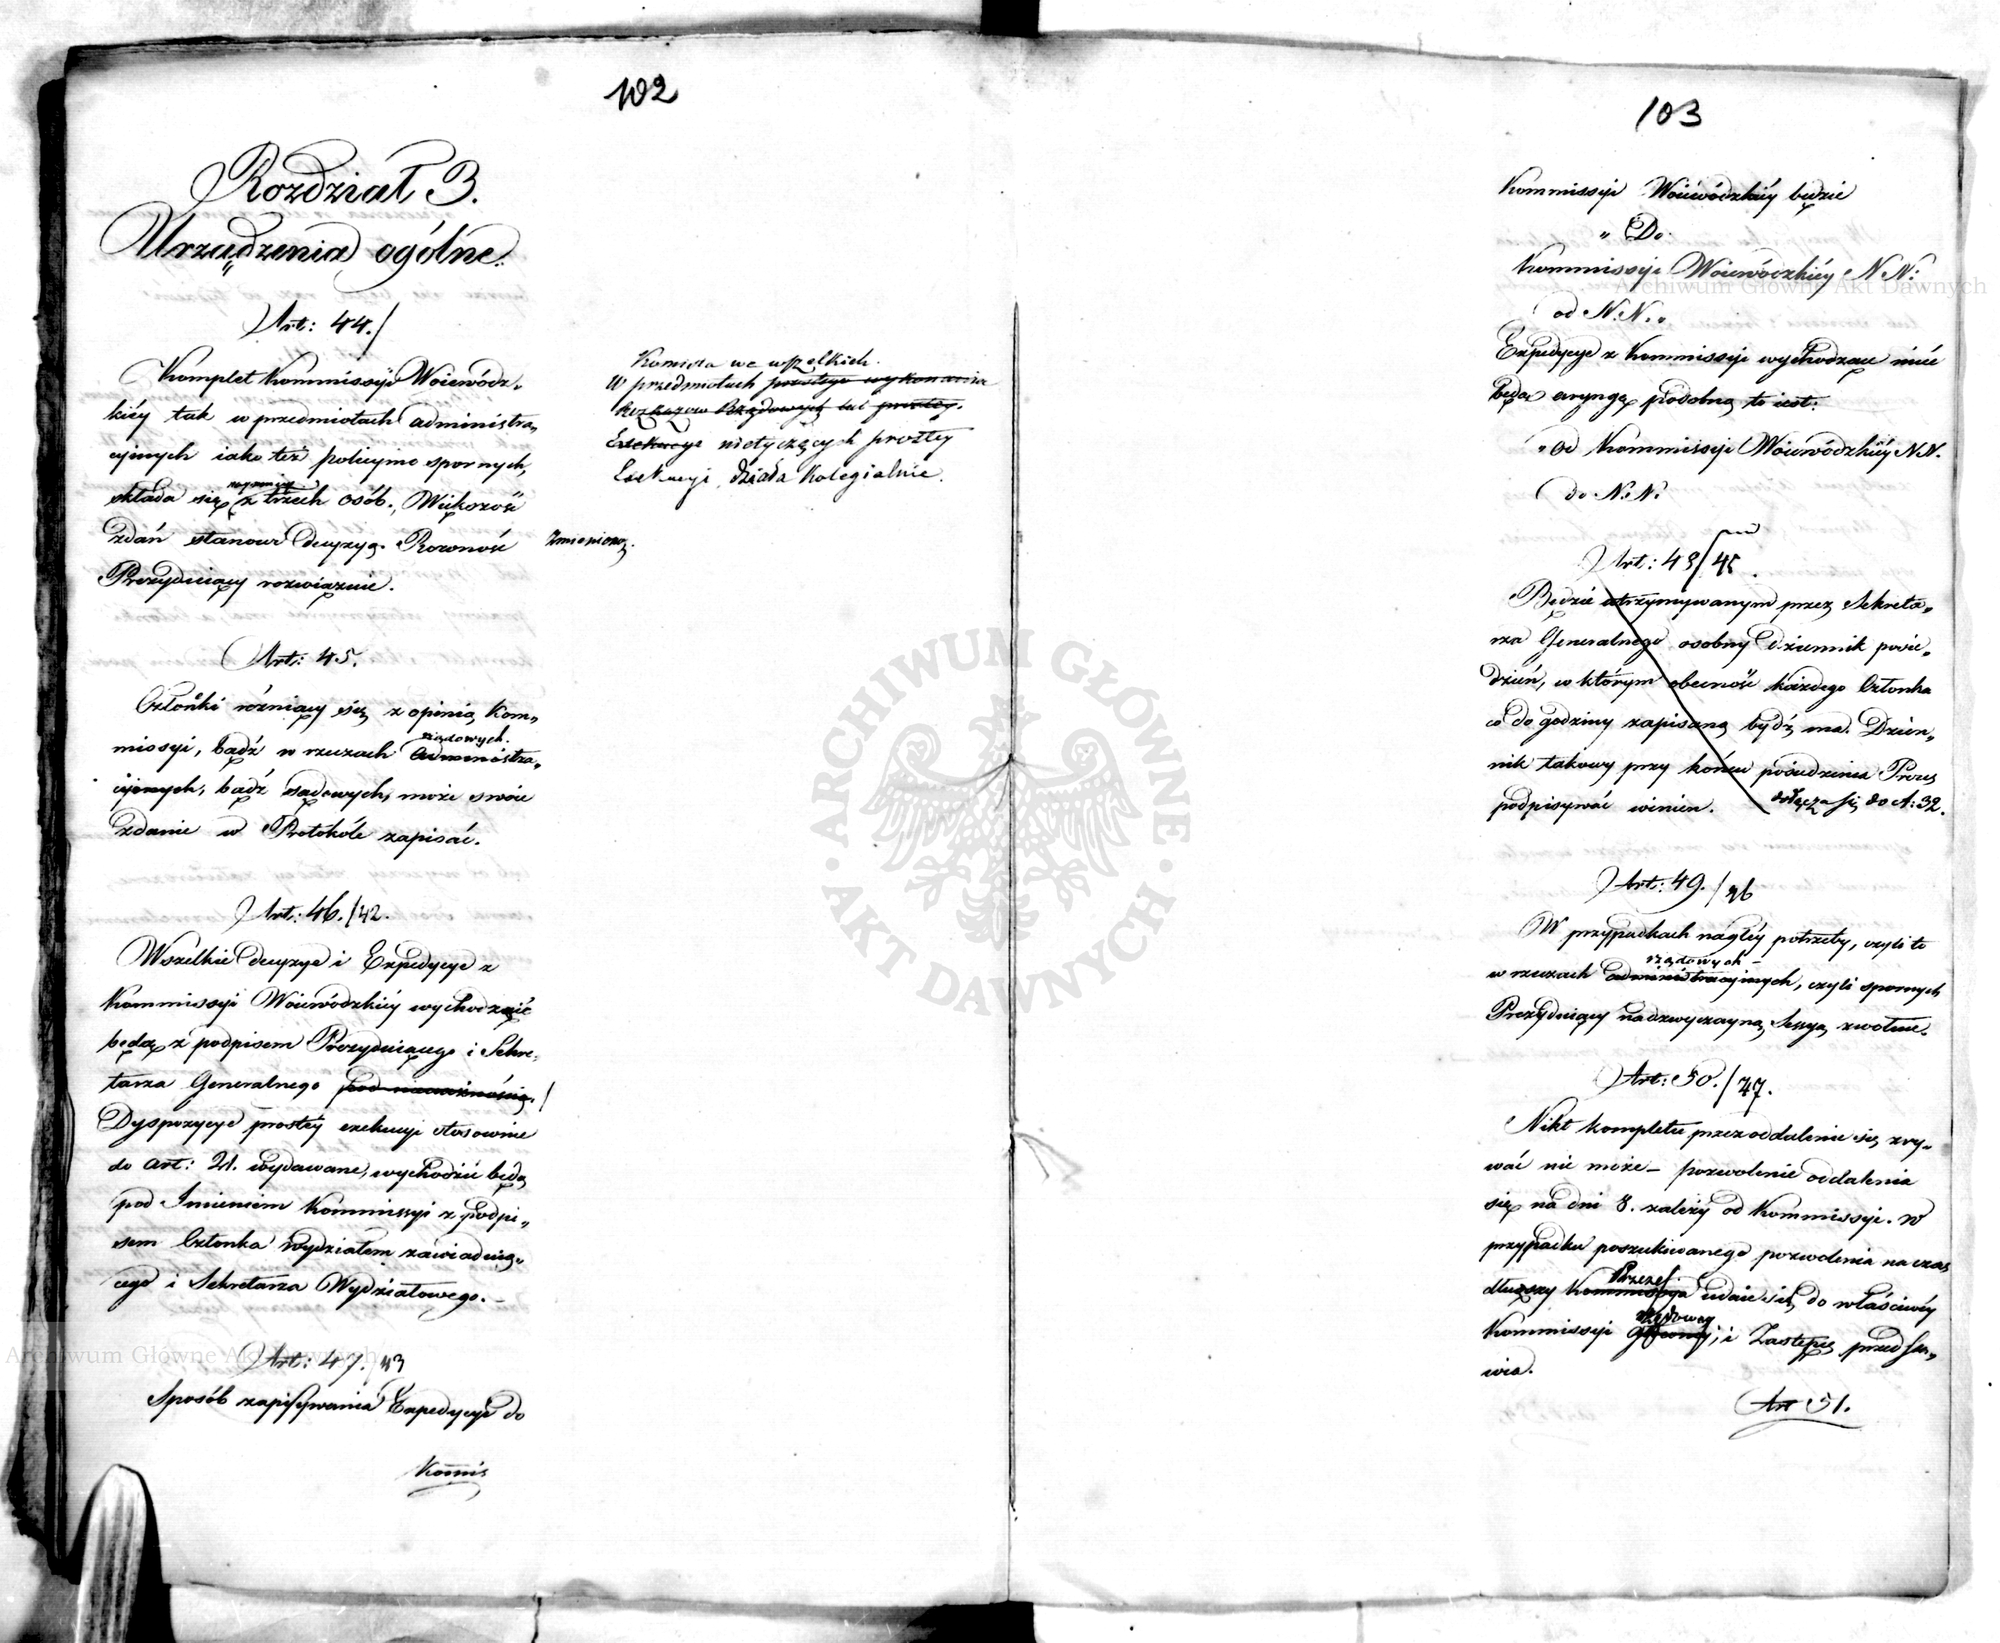 102
Rozdział 3.
Urządzenia ogólne.
Art: 44./
Komplet Kommissyi Woiewódz-
kiéy tak w przedmiotach administra-
cyinych iako też policyino spornych,
składa się naymniéy z trzech osób. Większość
zdań stanowi decyzyą. Rowność
Prezyduiący rozwiązuie.
Komisia we wszelkich
W przedmiotach prostego wykonania
Rozkazow Rządowych lub prostey
Exekucyi nietyczących prostey
Exekucyi, działa Kolegialnie.
Zmieniono
Art: 45.
Członki różniący się z opinią Kom-
missyi, bądź w rzeczach rządowych administra-
cyinych, bądź sądowych, może swoie
zdanie w Protokóle zapisać.
Art: 46./42.
Wszelkie decyzye i Expedycye z
Kommissyi Woiewódzkiéy wychodzić
będą z podpisem Prezyduiącego i Sekre-
tarza Generalnego pod nieważnością./
Dyspozycye prostéy exekucyi stosownie
do art: 21. wydawane, wychodzić będą
pod Imieniem Kommissyi z podpi-
sem Członka Wydziałem zawiaduią-
cego i Sekretarza Wydziałowego. -
Art: 47./43
Sposób zapisywania Expedycyi do
Kommis
103
Kommissyi Woiewódzkiéy będzie
" Do
Kommissyi Woiewódzkiéy N N:
od N. N. "
Expedycye z Kommissyi wychodzące mieć
będą aryngę podobną to iest:
" od Kommissyi Woiewódzkiéy N N.
do N: N:
Art: 48/45.
Będzie utrzymywanym przez Sekreta-
rza Generalnego osobny dziennik posie-
dzeń, w którym obecność każdego Członka
co do godziny zapisaną bydź ma. Dzien-
nik takowy przy końcu posiedzenia Prezes
podpisywać winien. dołącza się do A: 32.
Art: 49./46
W przypadkach nagłéy potrzeby, czyli to
w rzeczach rządowych administracyinych, czyli spornych
Prezyduiący nadzwyczayną Sessyą zwołuie.
Art: 50./47.
Nikt kompletu przez oddalenie się zry-
wać nie może - pozwolenie oddalenia
się na dni 8. zależy od Kommissyi. W
przypadku poszukiwanego pozwolenia na czas
dłuższy Prezes Kommissya udaie się do właściwéy
Kommissyi rządowey głównéy, i Zastępcę przedsta-
wia.
Art 51.
ARCHIWUM GŁÓWNE AKT DAWNYCH
Archiwum Główne Akt Dawnych
Archiwum Główne Akt Dawnych